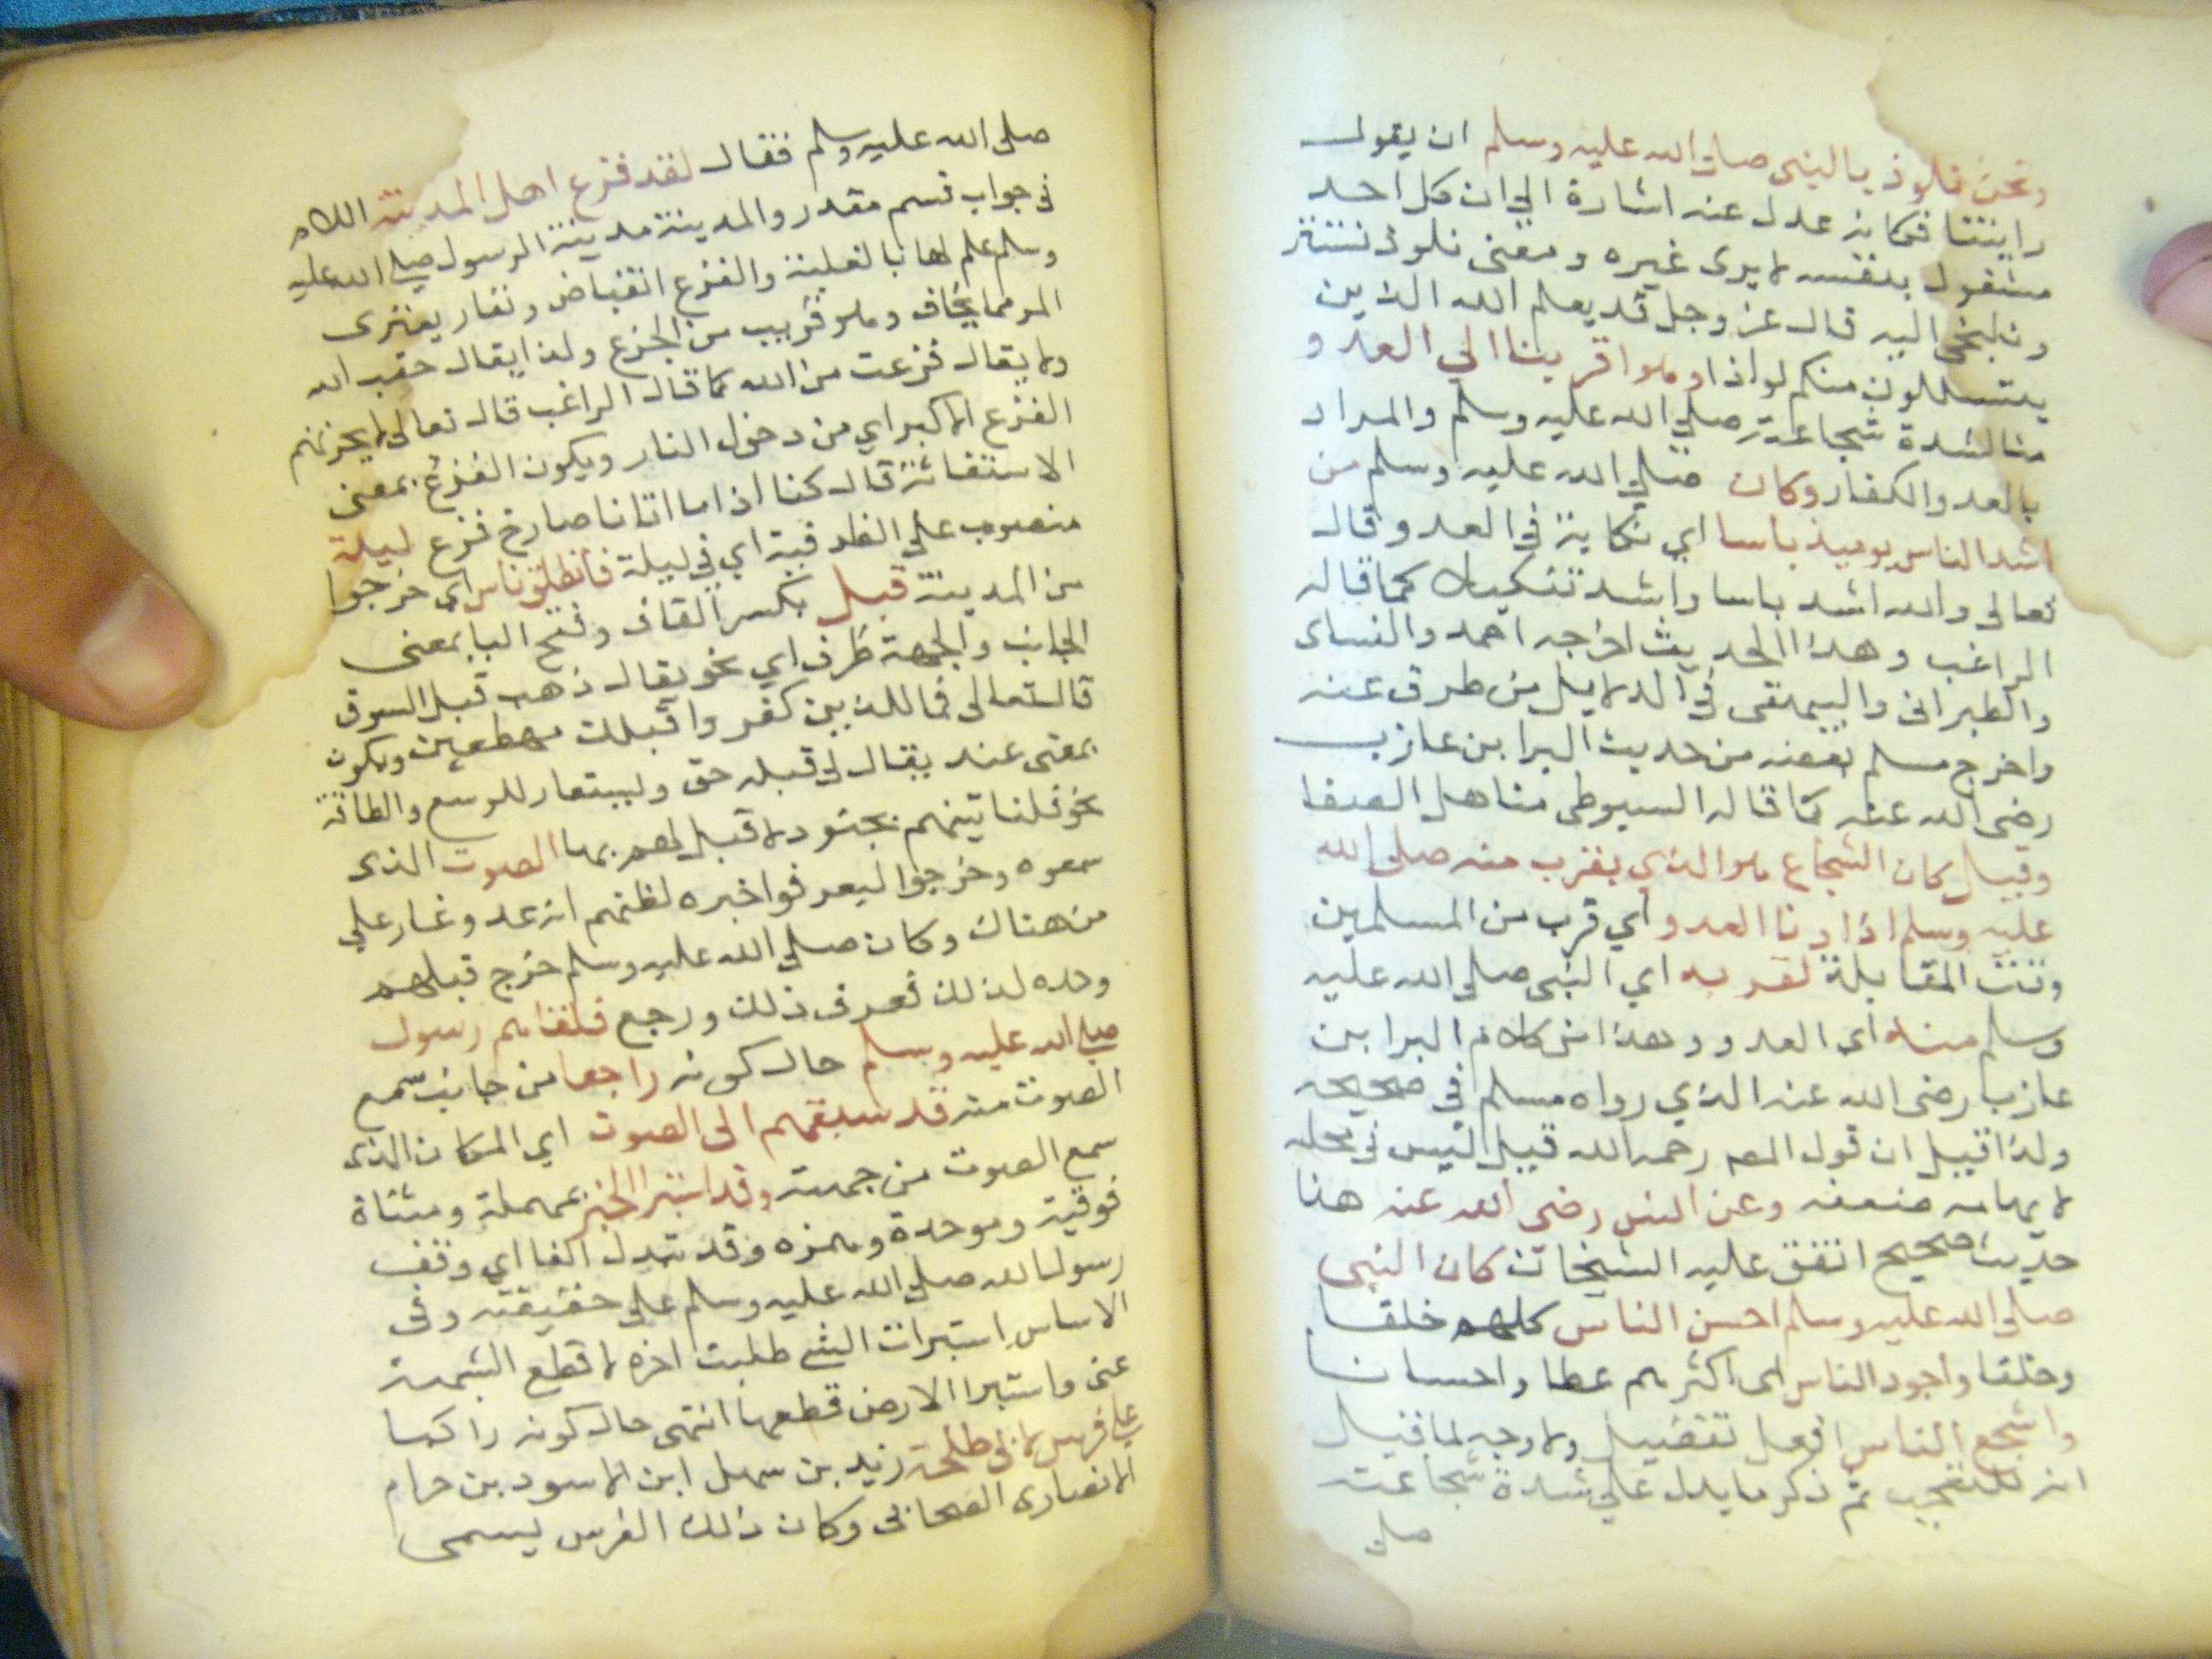 ونحن نلوذ بالنبى صلى الله عليه وسلم ان يقول
رايتنا فكانه عدل عنه اشارة الى ان كل احد
مشغول بنفسه لا يرى غيره ومعنى نلوذ نستتر
ونلتجى اليه قال عز وجل قد يعلم الله الذين
يتسللون منكم لواذا وهو اقربنا الي العدو
منا لشدة شجاعته صلي الله عليه وسلم والمراد
بالعدو الكفار وكان صلي الله عليه وسلم من
اشد الناس يوميذ باسا اي نكاية في العدو قال
تعالى والله اشد باسا واشد تنكيلا كما قاله
الراغب وهذا الحديث اخرجه احمد والنساى
والطبرانى والبيهقى في الدلايل من طرق عنه
واخرج مسلم بعضه من حديث البرا بن عازب
رضى الله عنه كما قاله السيوطى مناهل الصفا
وقيل كان الشجاع هو الذي يقرب منه صلى الله
عليه وسلم اذا دنا العدو اي قرب من المسلمين
وقت المقابلة لقربه اي النبى صلي الله عليه
وسلم منه اى العدو وهذا من كلام البرا بن
عازب رضى الله عنه الذي رواه مسلم في صحيحه
ولذا قيل ان قول المص رحمه الله قيل ليس فى محله
لايهامه ضعفه وعن انس رضى الله عنه هنا
حديث صحيح اتفق عليه الشيخان كان النبى
صلى الله عليه وسلم احسن الناس كلهم خلقا
وخلقا واجود الناس اى اكثرهم عطا واحسانا
واشجع الناس افعل تفضيل ولا وجه لما قيل
انه للتعجب ثم ذكر ما يدل علي شدة شجاعته
صلى
صلى الله عليه وسلم فقال لقد فزع اهل المدينة اللام
فى جواب قسم مقدر والمدينة مدينة الرسول صلي الله عليه
وسلم علم لها بالغلبة والفزع انقباض ونفار يعترى
المر مما يخاف وهو قريب من الجزع ولذا يقال خف الله
ولا يقال فزعت من الله كما قال الراغب قال تعالى لا يحزنهم
الفزع الاكبر اي من دخول النار ويكون الفزع بمعنى
الاستغاثة قال كنا اذا ما اتانا صارخ فزع ليلة
منصوب علي الظرفية اي في ليلة فانطلق ناس اي خرجوا
من المدينة قبل بكسر القاف وفتح البا بمعنى
الجانب والجهة ظرف اي نحو يقال ذهب قبل السوق
قال تعالى فمال الذين كفروا قبلك مهطعين ويكون
بمعنى عند يقال لى قبله حق ويستعار للوسع والطاقة
نحو فلناتينهم بجنود لا قبل لهم بها الصوت الذى
سمعوه وخرجوا ليعرفوا خبره لظنهم انه عدو غار علي
من هناك وكان صلي الله عليه وسلم خرج قبلهم
وحده لذلك فعرف ذلك ورجع فتلقاهم رسول
صلي الله عليه وسلم حال كونه راجعا من جانب سمع
الصوت منه قد سبقهم الى الصوت اي المكان الذى
سمع الصوت من جهته وقد استبرا الخبر بمهملة ومثناة
فوقية وموحدة وهمزه وقد تبدل الفا اي وقف
رسول الله صلي الله عليه وسلم علي حقيقته وفى
الاساس استبرات الشى طلبت اخره لاقطع الشبهة
عنى واستبرا الارض قطعها انتهى حال كونه راكبا
علي فرس لابى طلحة زيد بن سهل ابن الاسود بن حرام
الانصارى الصحابى وكان ذلك الفرس يسمى